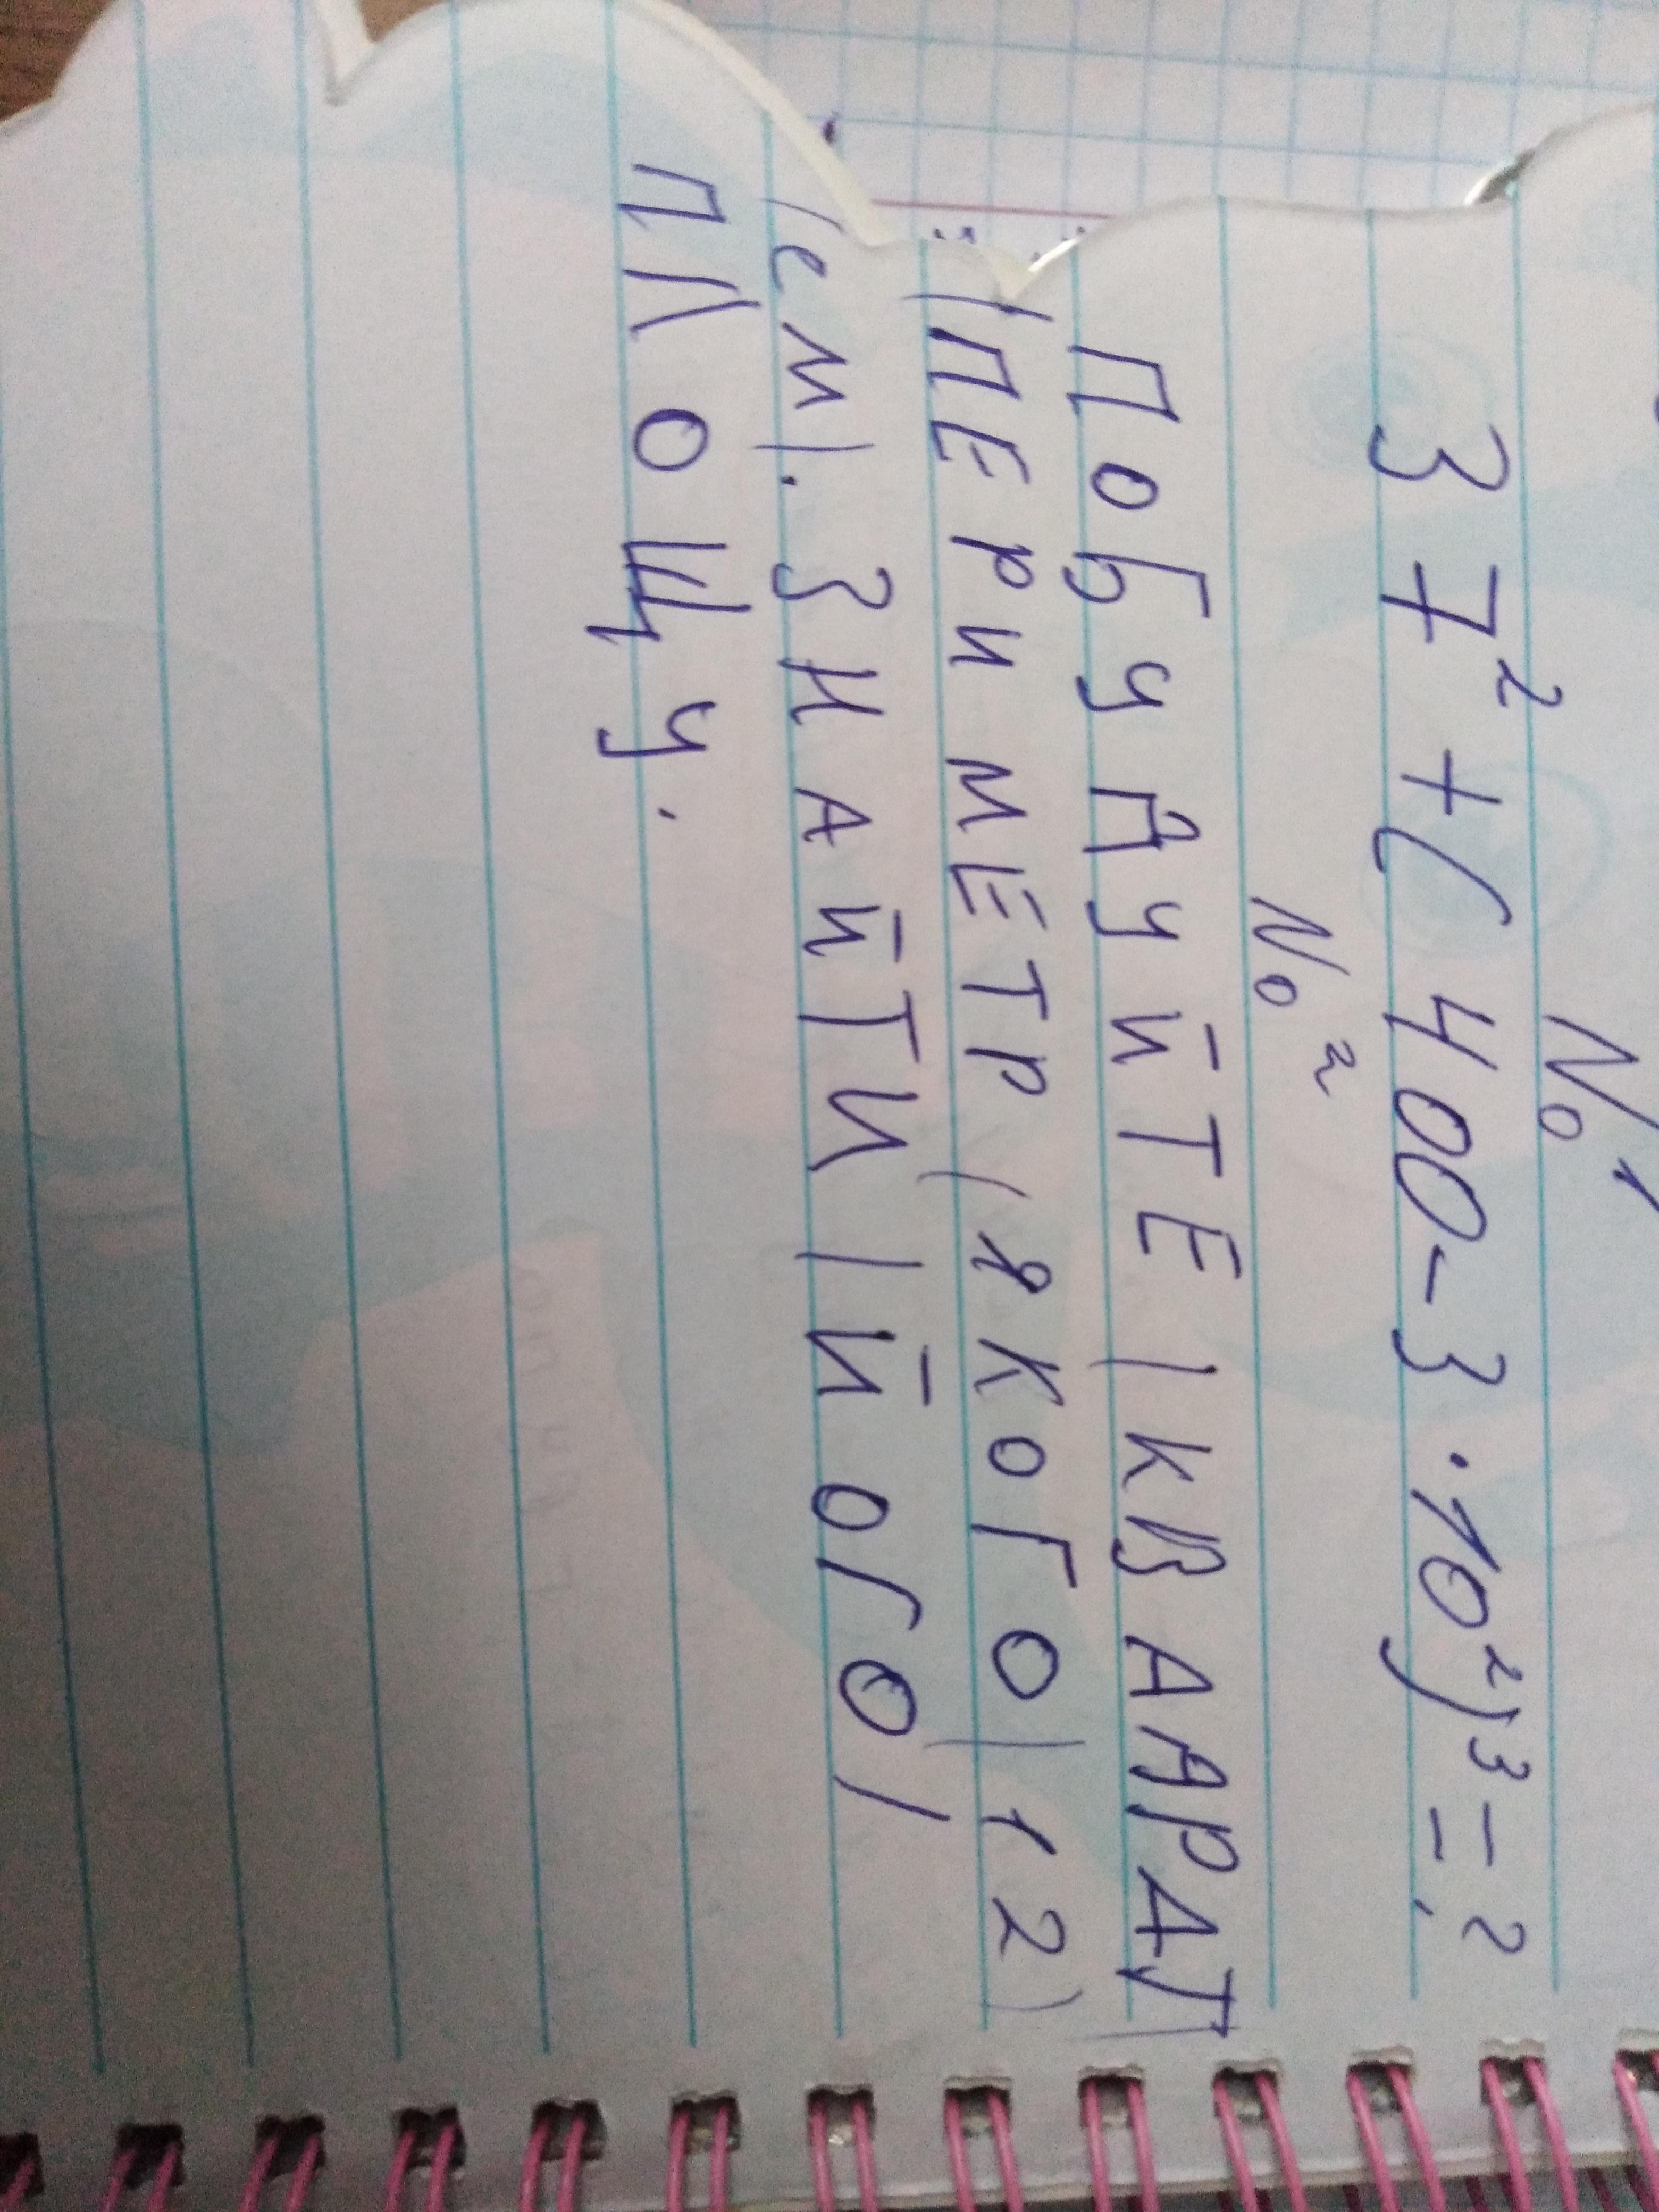 № 1
37² + (400 - 3 · 10²)³ = ?
№ 2
ПОБУДУЙТЕ | КВААРАТ|
|ПЕРИМЕТР | ЯКОГО | 12)
(см). ЗНАЙТИ | ЙОГО |
ПЛОЩУ.